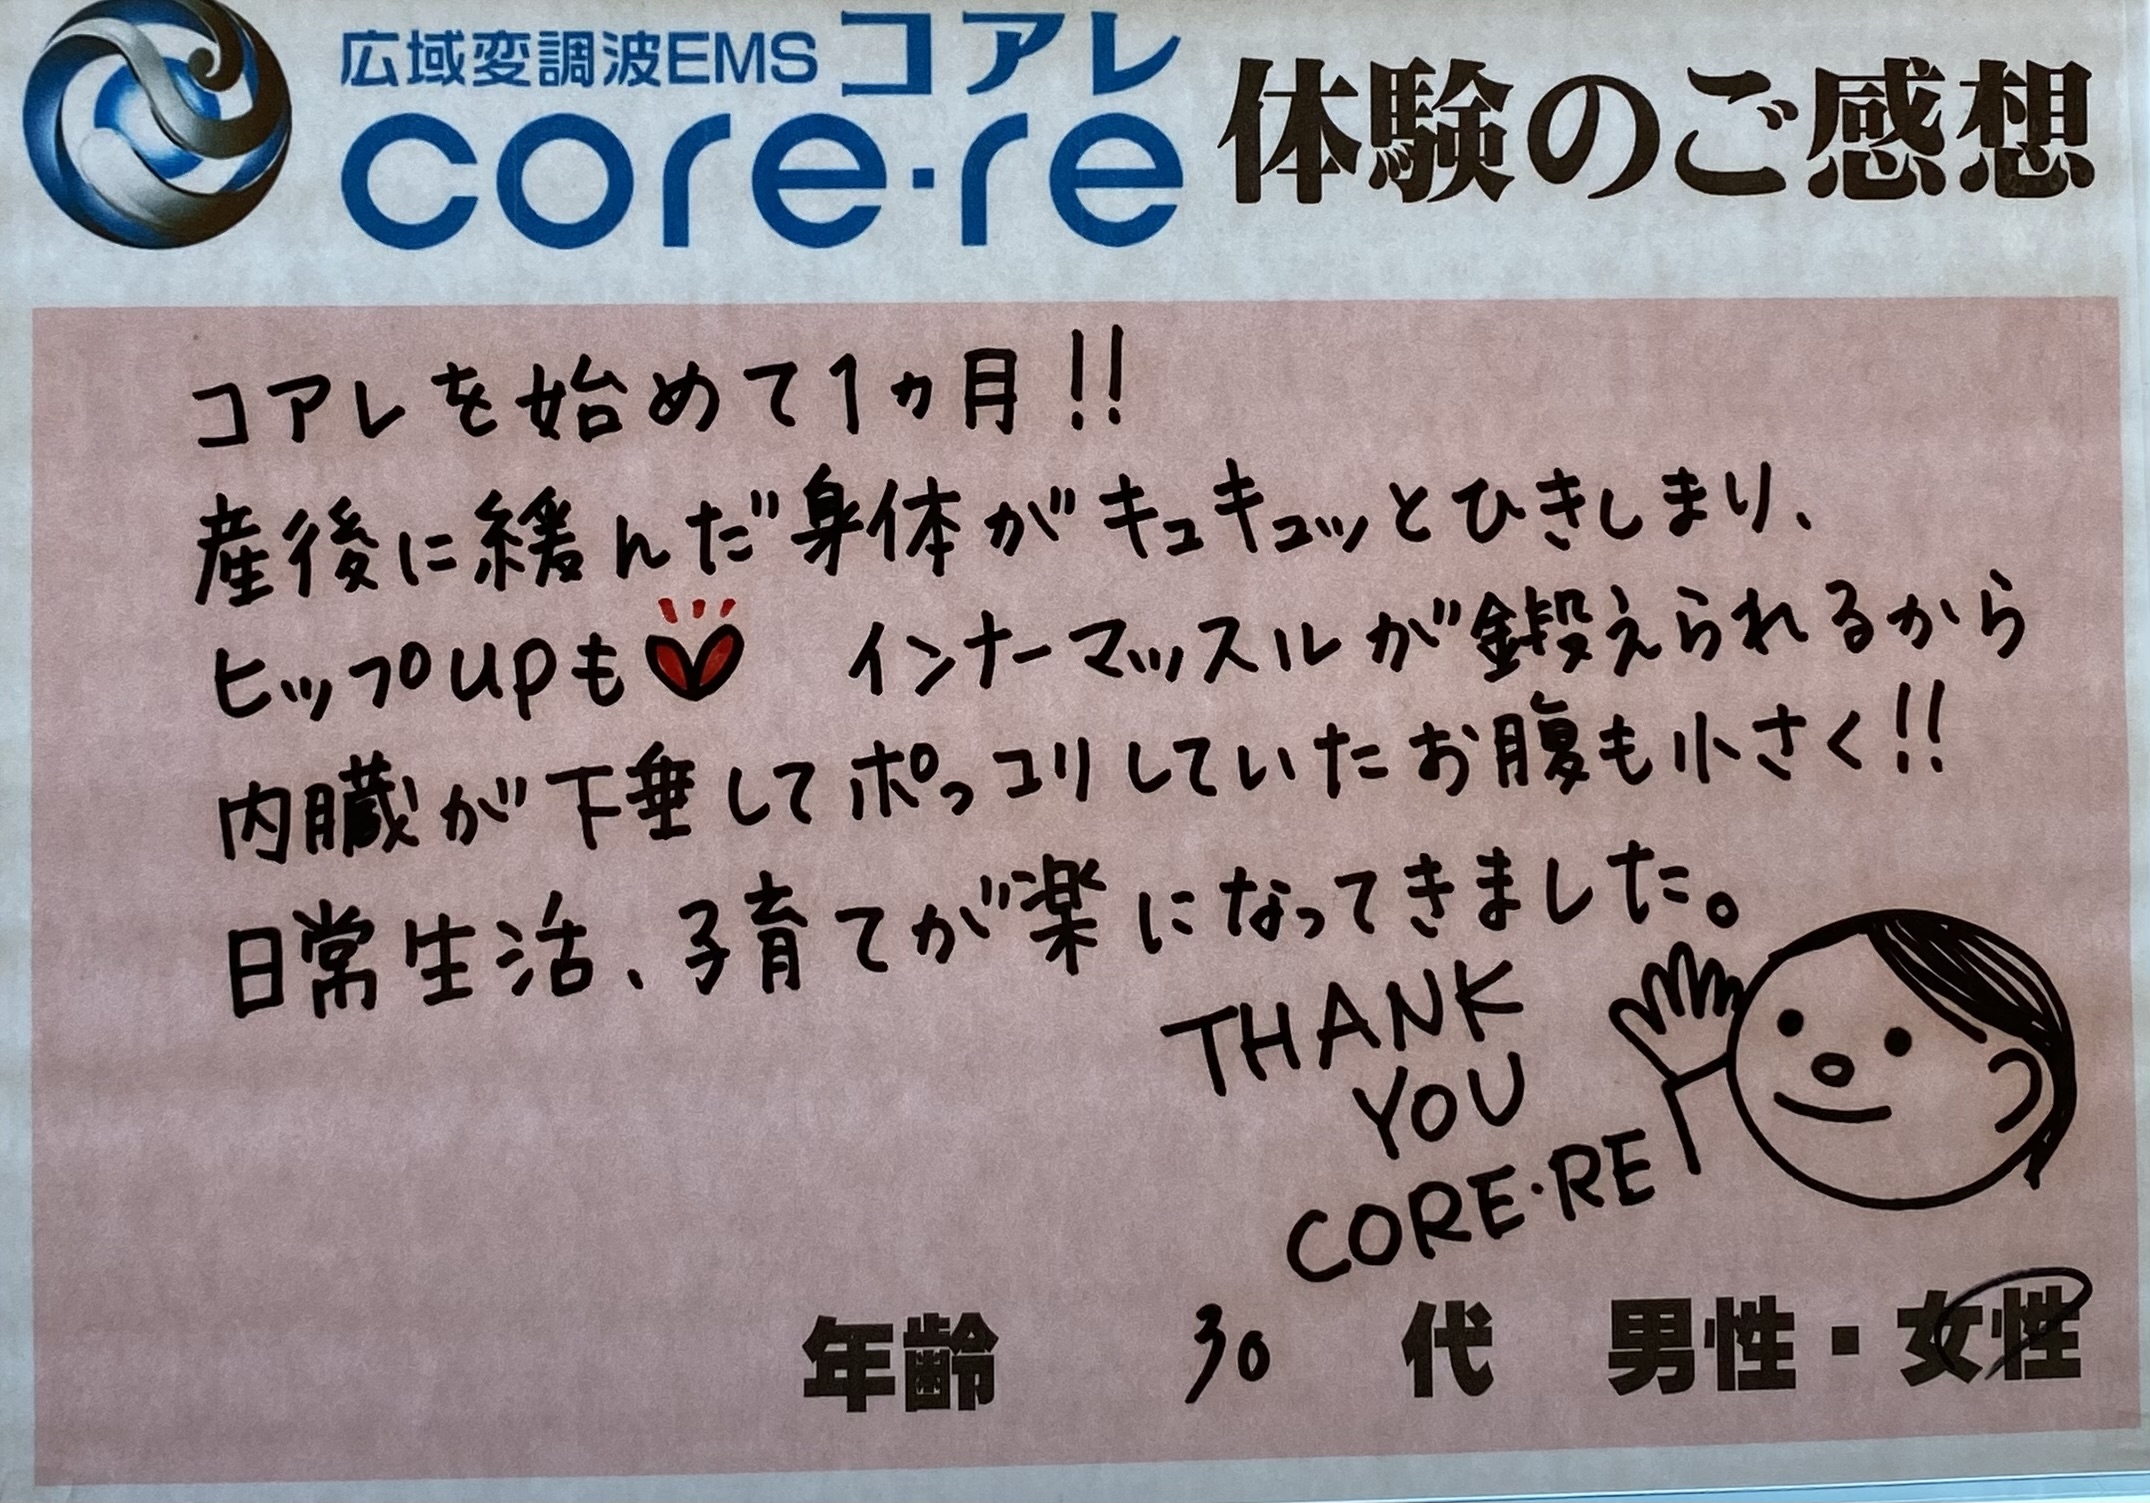 広域変調波EMS コアレ
core・re 体験のご感想
コアレを始めて1ヵ月!!
産後に緩んだ身体がキュキュッとひきしまり、
ヒップupも インナーマッスルが鍛えられるから
内臓が下垂してポッコリしていたお腹も小さく!!
日常生活、子育てが楽になってきました。
THANK
YOU
CORE・RE
年齢 30 代 男性・女性